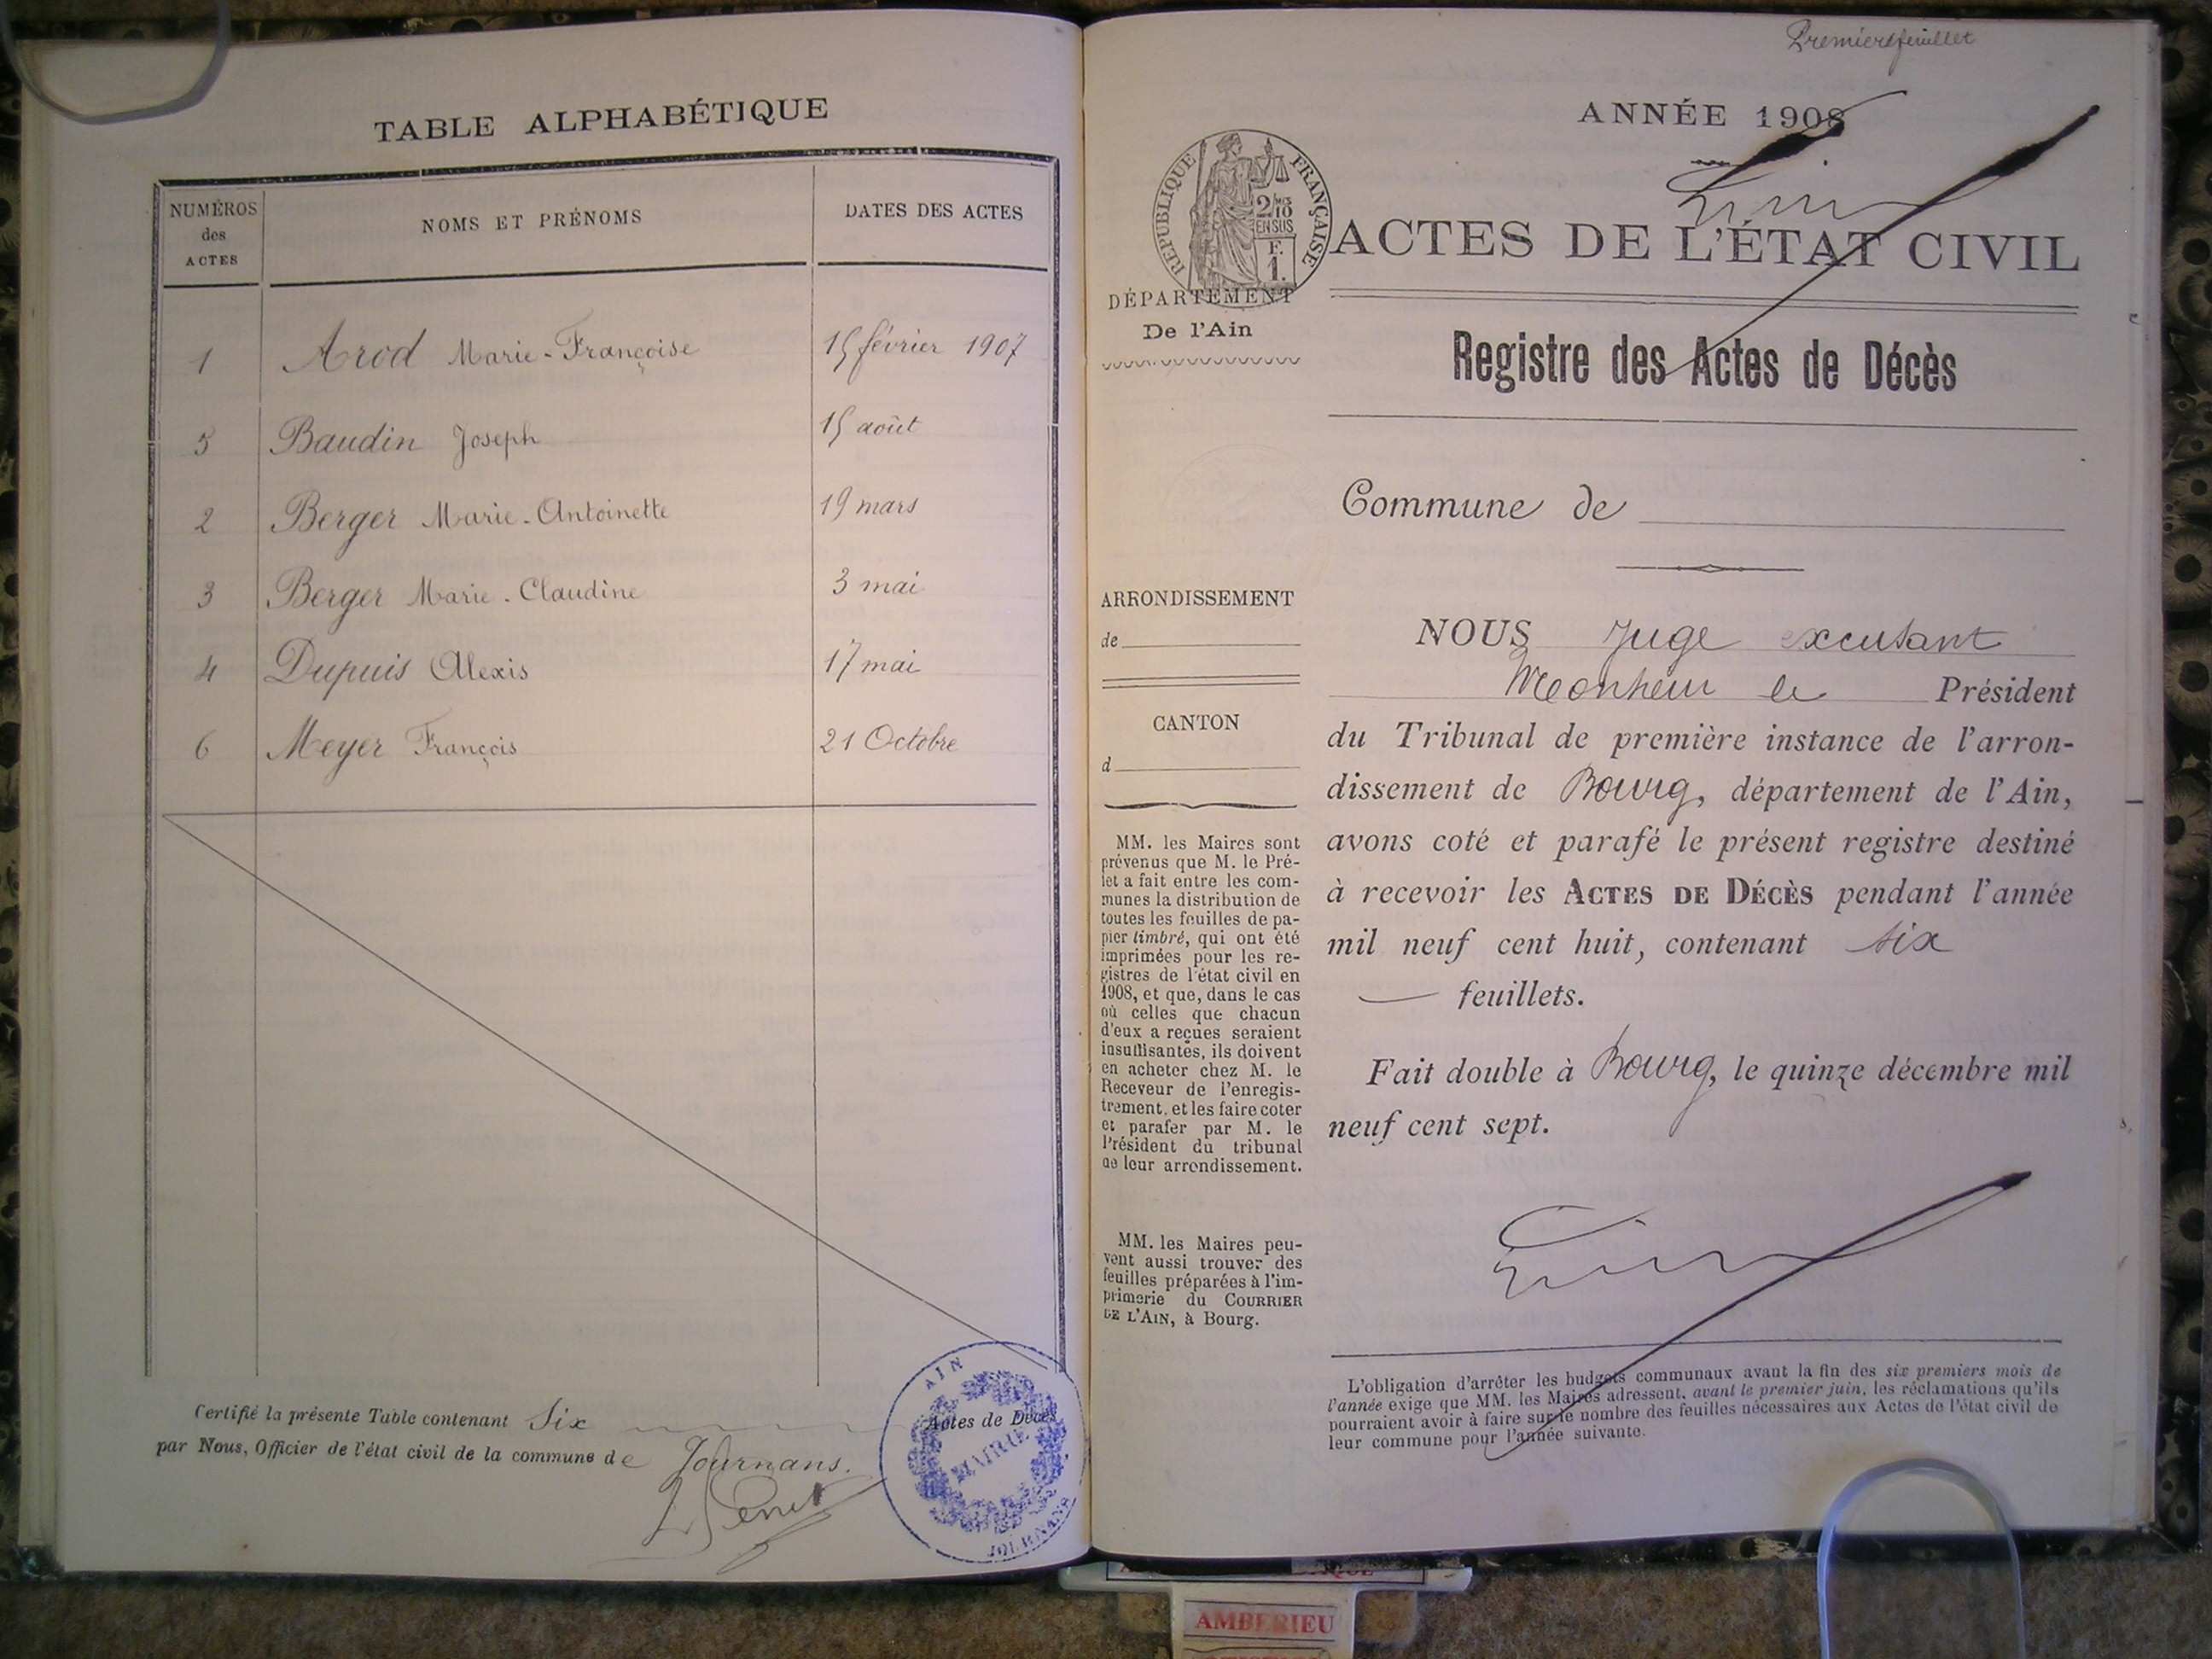 TABLE ALPHABÉTIQUE
NUMÉROS des ACTES
NOMS ET PRÉNOMS
DATES DES ACTES
1 Arod Marie-Françoise 15 février 1907
5 Baudin Joseph 15 août
2 Berger Marie-Antoinette 19 mars
3 Berger Marie-Claudine 3 mai
4 Dupuis Alexis 17 mai
6 Meyer François 21 Octobre
Certifié la présente Table contenant Six Actes de Décès
par Nous, Officier de l'état civil de la commune de Journans.
AIN
MAIRIE
JOURNANS
Premier feuillet
ANNÉE 1908
RÉPUBLIQUE FRANÇAISE
2/10 EN SUS
F.
1.
ACTES DE L'ÉTAT CIVIL
DÉPARTEMENT
De l'Ain
Registre des Actes de Décès
Commune de
ARRONDISSEMENT
de
CANTON
d
MM. les Maires sont
prévenus que M. le Pré-
fet a fait entre les com-
munes la distribution de
toutes les feuilles de pa-
pier timbré, qui ont été
imprimées pour les re-
gistres de l'état civil en
1908, et que, dans le cas
où celles que chacun
d'eux a reçues seraient
insuffisantes, ils doivent
en acheter chez M. le
Receveur de l'enregis-
trement, et les faire coter
et parafer par M. le
Président du tribunal
de leur arrondissement.
MM. les Maires peu-
vent aussi trouver des
feuilles préparées à l'im-
primerie du COURRIER
DE L'AIN, à Bourg.
NOUS Juge excusant
Monsieur le Président
du Tribunal de première instance de l'arron-
dissement de Bourg, département de l'Ain,
avons coté et parafé le présent registre destiné
à recevoir les ACTES DE DÉCÈS pendant l'année
mil neuf cent huit, contenant six
feuillets.
Fait double à Bourg, le quinze décembre mil
neuf cent sept.
L'obligation d'arrêter les budgets communaux avant la fin des six premiers mois de
l'année exige que MM. les Maires adressent, avant le premier juin, les réclamations qu'ils
pourraient avoir à faire sur le nombre des feuilles nécessaires aux Actes de l'état civil de
leur commune pour l'année suivante.
AMBERIEU